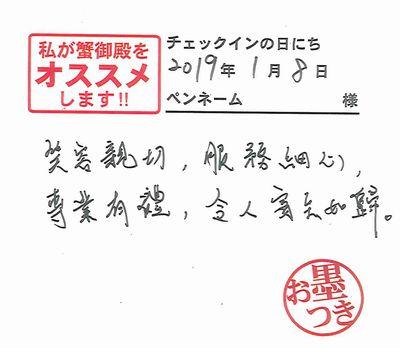 私が蟹御殿を
オススメ
します!!
チェックインの日にち
2019年1月8日
ペンネーム 様
笑容親切，服務細心，
專業有禮，令人賓至如歸。
お墨つき